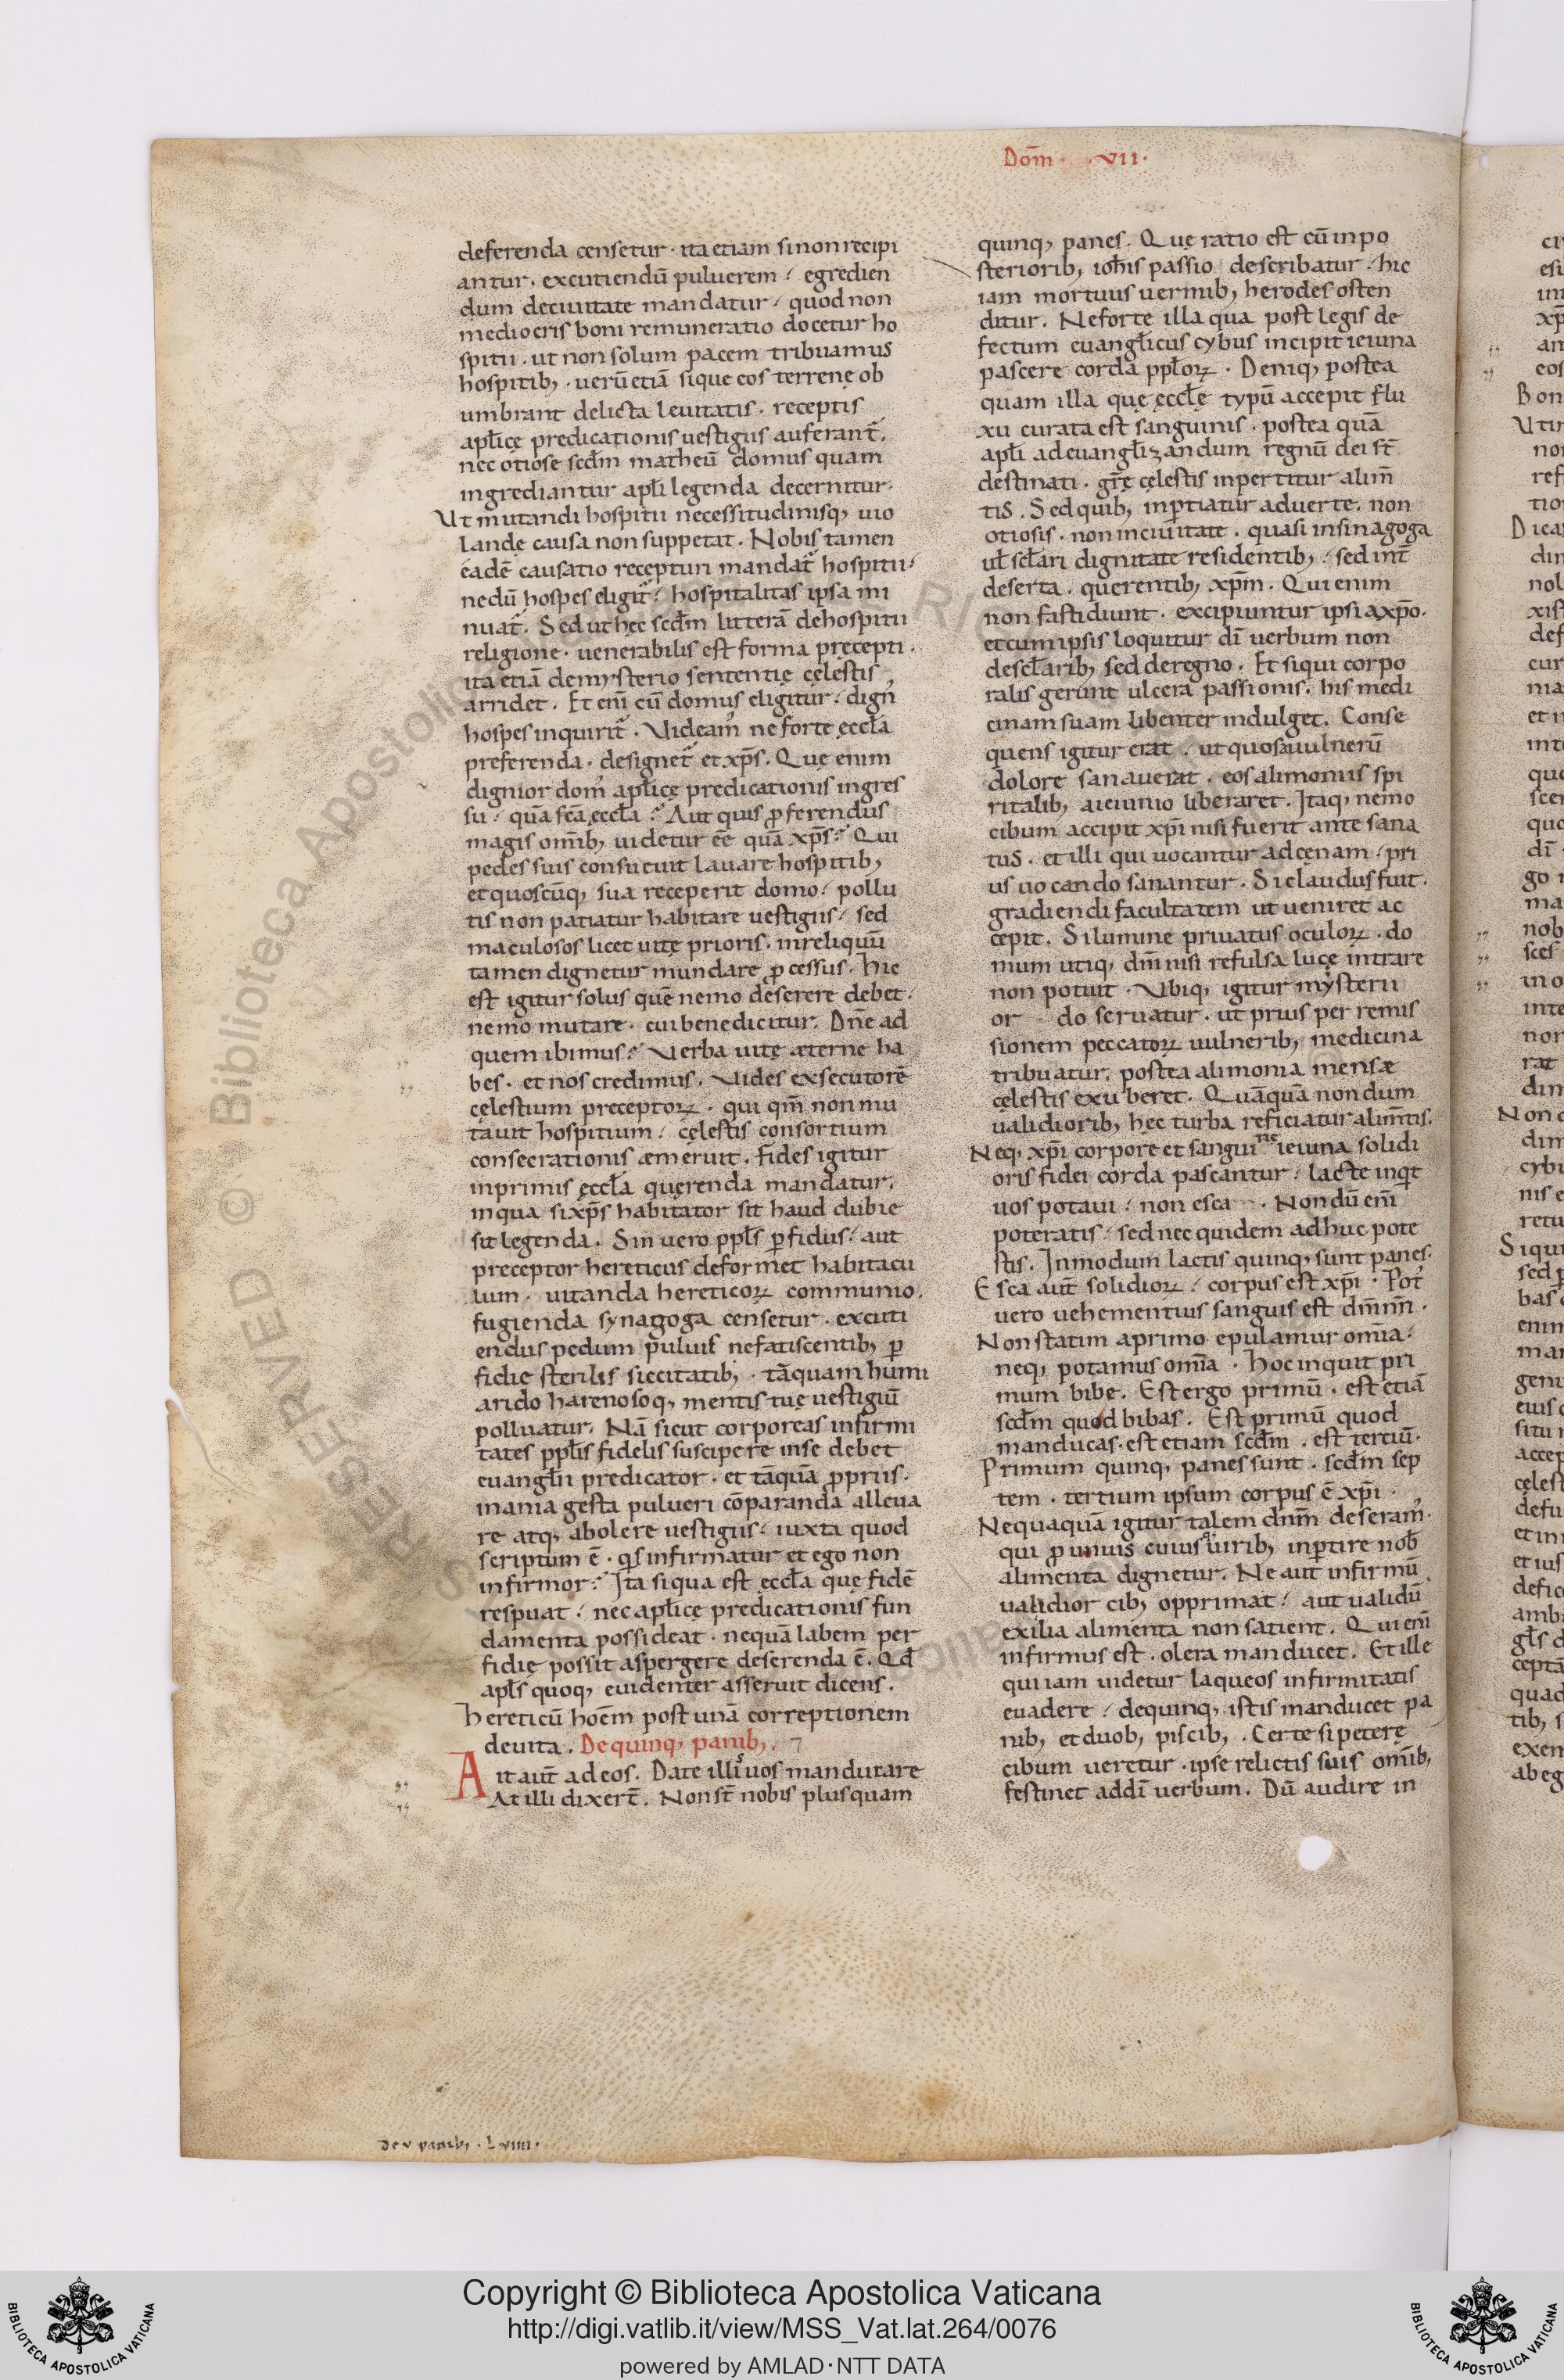 Dom̄ · VII ·
deferenda censetur · ita etiam si non recipi
antur · excutiendū puluerem / egredien
dum deciuitate mandatur / quod non
mediocris boni remuneratio docetur ho
spitii . ut non solum pacem tribuamus
hospitib; · uerū etiā sique eos terrenę ob
umbrant delicta leuitatis · receptis
apl̄icę predicationis uestigiis auferant̄ .
nec otiose scd̄m matheū domus quam
ingrediantur apl̄i legenda decernitur ·
Ut mutandi hospitii necessitudinisq; uio
landę causa non suppetat . Nobis tamen
eadē causatio recepturi mandat᷑ hospitii /
nedū hospes eligit᷑ / hospitalitas ipsa mi
nuat᷑ . Sed ut hęc scd̄m litterā dehospitii
religione · uenerabilis est forma precepti ·
ita etiā demysterio sententię cęlestis
arridet . Et eni᷑ cū domus eligitur / dign᷒
hospes inquirit᷑ . Videam᷒ ne forte ęccl̄a
preferenda · designet᷑ et xp̄s . Quę enim
dignior dom᷒ apl̄icę predicationis ingres
su / quā sc̄a ęccl̄a ? Aut quis ꝓferendus
magis omīb; uidetur ēe quā xp̄s ? Qui
pedes suis consueuit lauare hospitib;
et quoscūq; sua receperit domo / pollu
tis non patiatur habitare uestigiis / sed
maculosos licet uitę prioris · inreliquū
tamen dignetur mundare ꝓcessus · Hic
est igitur solus quē nemo deserere debet ·
nemo mutare · cui benedicitur . Dn̄e ad
quem ibimus ? Verba uitę æterne ha
bes · et nos credimus . Vides exsecutorē
cęlestium preceptoꝝ · qui qm̄ non mu
tauit hospitium / cęlestis consortium
consecrationis æmeruit . Fides igitur
inprimis ęccl̄a quęrenda mandatur /
in qua si xp̄s habitator sit haud dubie
sit legenda . Sin uero ppl̄s ꝑfidus / aut
preceptor hereticus deformet habitacu
lum · uitanda hereticoꝝ communio .
fugienda synagoga censetur · excuti
endus pedum puluis᷒ nefatiscentib; ꝑ
fidię sterilis siccitatib; · tāquam humi
arido harenosoq; mentis tuę uestigiū
polluatur . Nā sicut corporeas infirmi
tates ppl̄is fidelis suscipere inse debet
euangl̄ii predicator · et tāquā ꝓpriis ·
inania gesta pulueri cōparanda alleua
re atq; abolere uestigiis / iuxta quod
scriptum ē · qͥs infirmatur et ego non
infirmor ? Ita siqua est ęccl̄a quę fidē
respuat / nec apl̄icę predicationis fun
damenta possideat · nequā labem per
fidię possit aspergere deserenda ē . Qd̄
apl̄s quoq; euidenter asseruit dicens .
Hereticū hoēm post unā correptionem
deuita . De quinq; panib; . ⁊
Ait aut̄ ad eos . Date illi᷒ uos manducare
At illi dixer̄t . Non st̄ nobis plusquam
quinq; panes . Quę ratio est cū inpo
steriorib; ioh̄is passio describatur / hic
iam mortuus uermib; herodes osten
ditur . Neforte illa qua post legis de
fectum euangl̄icus cybus incipit ieiuna
pascere corda ppl̄oꝝ · Deniq; postea
quam illa quę ęccl̄ę typū accepit flu
xu curata est sanguinis · postea quā
apl̄i adeuangl̄izandum regnū dei st̄
destinati · gr̄ę cęlestis inpertitur alim̄
tis . Sed quib; inꝑtiatur aduerte . non
otiosis · non inciuitate · quasi insinagoga
ul̄ scl̄ari dignitate residentib; / sed int̄
deserta · querentib; xp̄m . Qui enim
non fastidiunt · excipiuntur ipsi axp̄o .
et cum ipsis loquitur dī uerbum non
descl̄arib; sed deregno . Et siqui corpo
ralis gerunt ulcera passionis . his medi
cinam suam libenter indulget . Conse
quens igitur erat . ut quos auulnerū
dolore sanauerat . eos alimoniis spi
ritalib; aieiunio liberaret . Itaq; nemo
cibum accipit xp̄i nisi fuerit ante sana
tus . et illi qui uocantur ad cęnam / pri
us uocando sanantur . Si claudus fuit .
gradiendi facultatem ut ueniret ac
cepit . Si lumine priuatus oculoꝝ · do
mum utiq; dm̄ nisi refulsa luce intrare
non potuit . Vbiq; igitur mysterii
or do seruatur . ut prius per remis
sionem peccatoꝝ uulnerib; medicina
tribuatur . postea alimonia mensæ
cęlestis exuberet . Quāquā nondum
ualidiorib; hęc turba reficiatur alim̄tis .
Neq; xp̄i corpore et sanguine ieiuna solidi
oris fidei corda pascantur / lacte inqͥt
uos potaui / non esca . Nondū eni᷑
poteratis / sed nec quidem adhuc pote
stis . Inmodum lactis quinq; sunt panes .
Esca aut̄ solidioꝝ / corpus est xp̄i . Pot᷒
uero uehementius sanguis est dm̄ni̅ .
Non statim aprimo epulamur omīa /
neq; potamus omīa . Hoc inquit pri
mum bibe . Est ergo primū · est etiā
scd̄m quod bibas . Est primū quod
manducas · est etiam scd̄m . est tertiū .
Primum quinq; panes sunt . scd̄m sep
tem . tertium ipsum corpus ē xp̄i .
Nequaquā igitur talem dnm̄ deseram᷒ .
qui ꝓ unius cuiusq; uirib; inꝑtire nob̄
alimenta dignetur . Ne aut infirmū
ualidior cib; opprimat / aut ualidū
exilia alimenta non satient . Qui eni᷑
infirmus est . olera manducet . Et ille
qui iam uidetur laqueos infirmitatis
euadere / dequinq; istis manducet pa
nib; et duob; piscib; . Certe si petere
cibum ueretur · ipse relictis suis omīb;
festinet ad dī uerbum . Dū audire in
de v panib; . Lviiii .
Copyright © Biblioteca Apostolica Vaticana
http://digi.vatlib.it/view/MSS_Vat.lat.264/0076
powered by AMLAD·NTT DATA